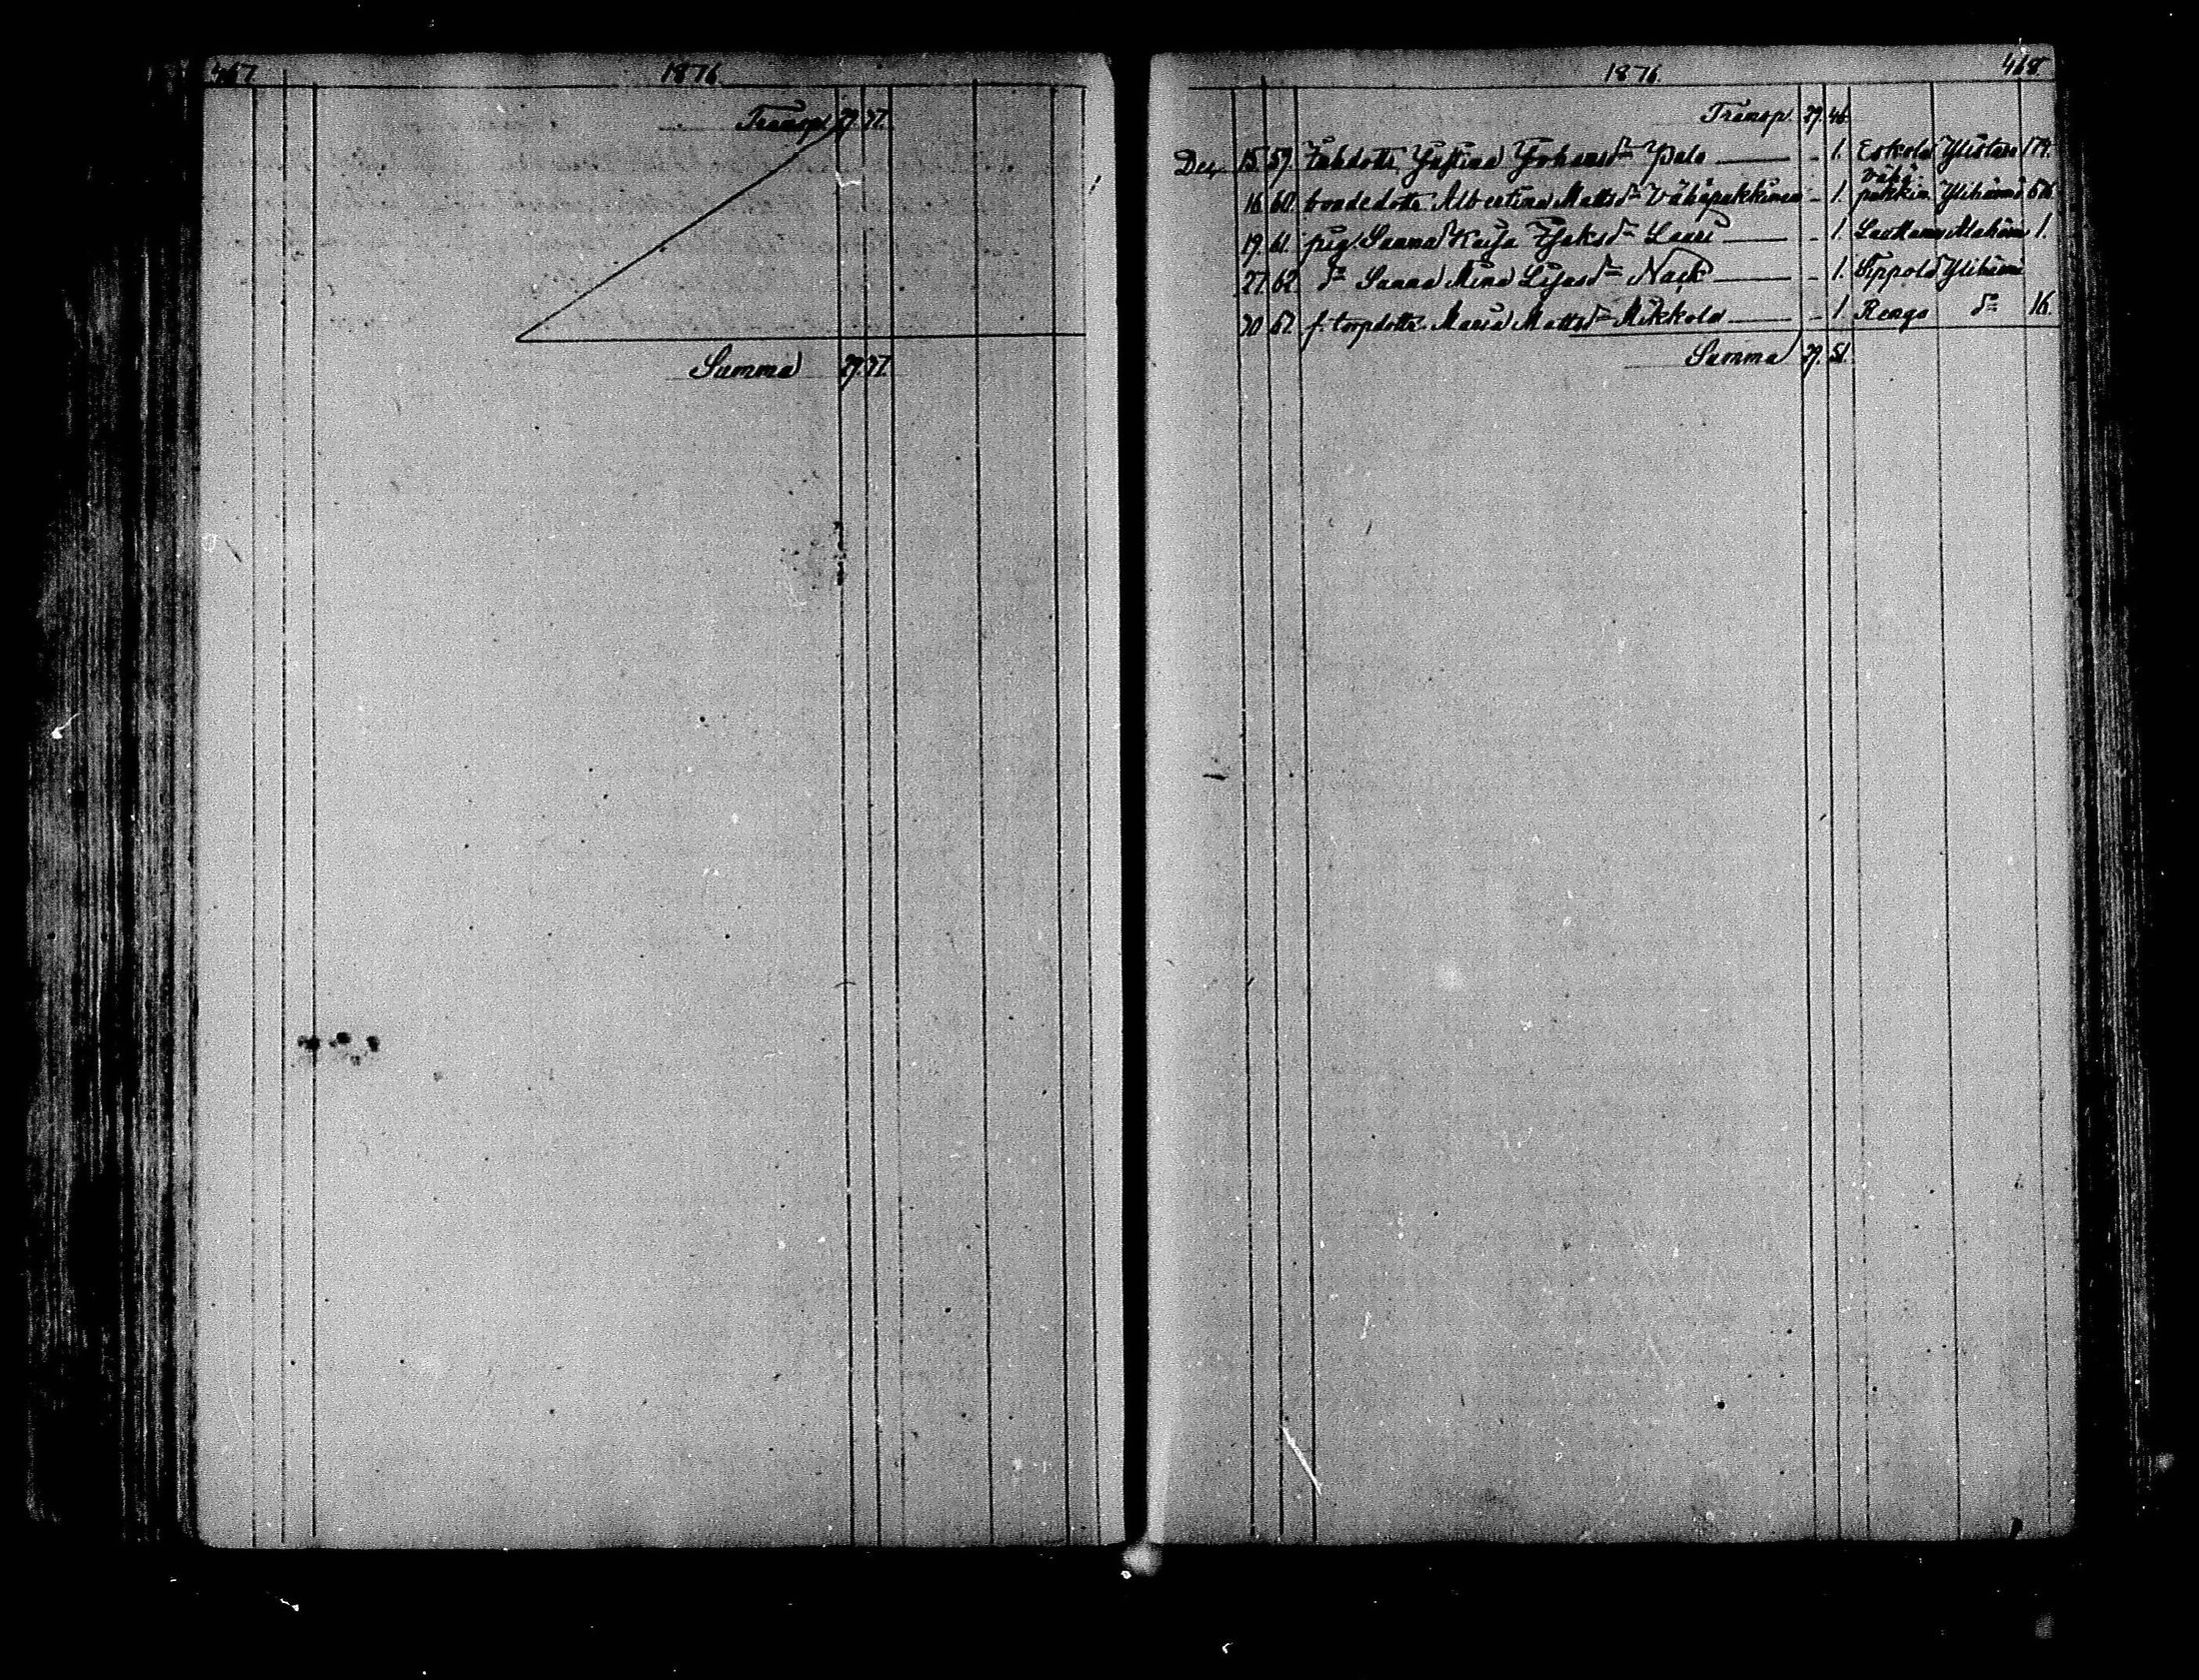 467 1876
Transp. 29. 37.
Summa 29. 37.
1876. 468
Transp. 29. 46.
Dec. 15. 59. Inhdottr. Justina Johansdr Palo — - 1. Eskola Ylistaro 179.
Vähä-
16. 60. bondedottr. Albertina Mattsdr Vähäpakkinen - 1. pakkin. Ylihärmä 56.
19. 61. pig. Sanna Kaisa Isaksdr Lauri — - 1. Alahärm 1.
27. 62. do Sanna Mina — - 1. Ylihärmä
30. 63. f. torpdottr. Maria Mattsdr Mikkola — - 1. Rengo do 16.
Summa 29. 51.